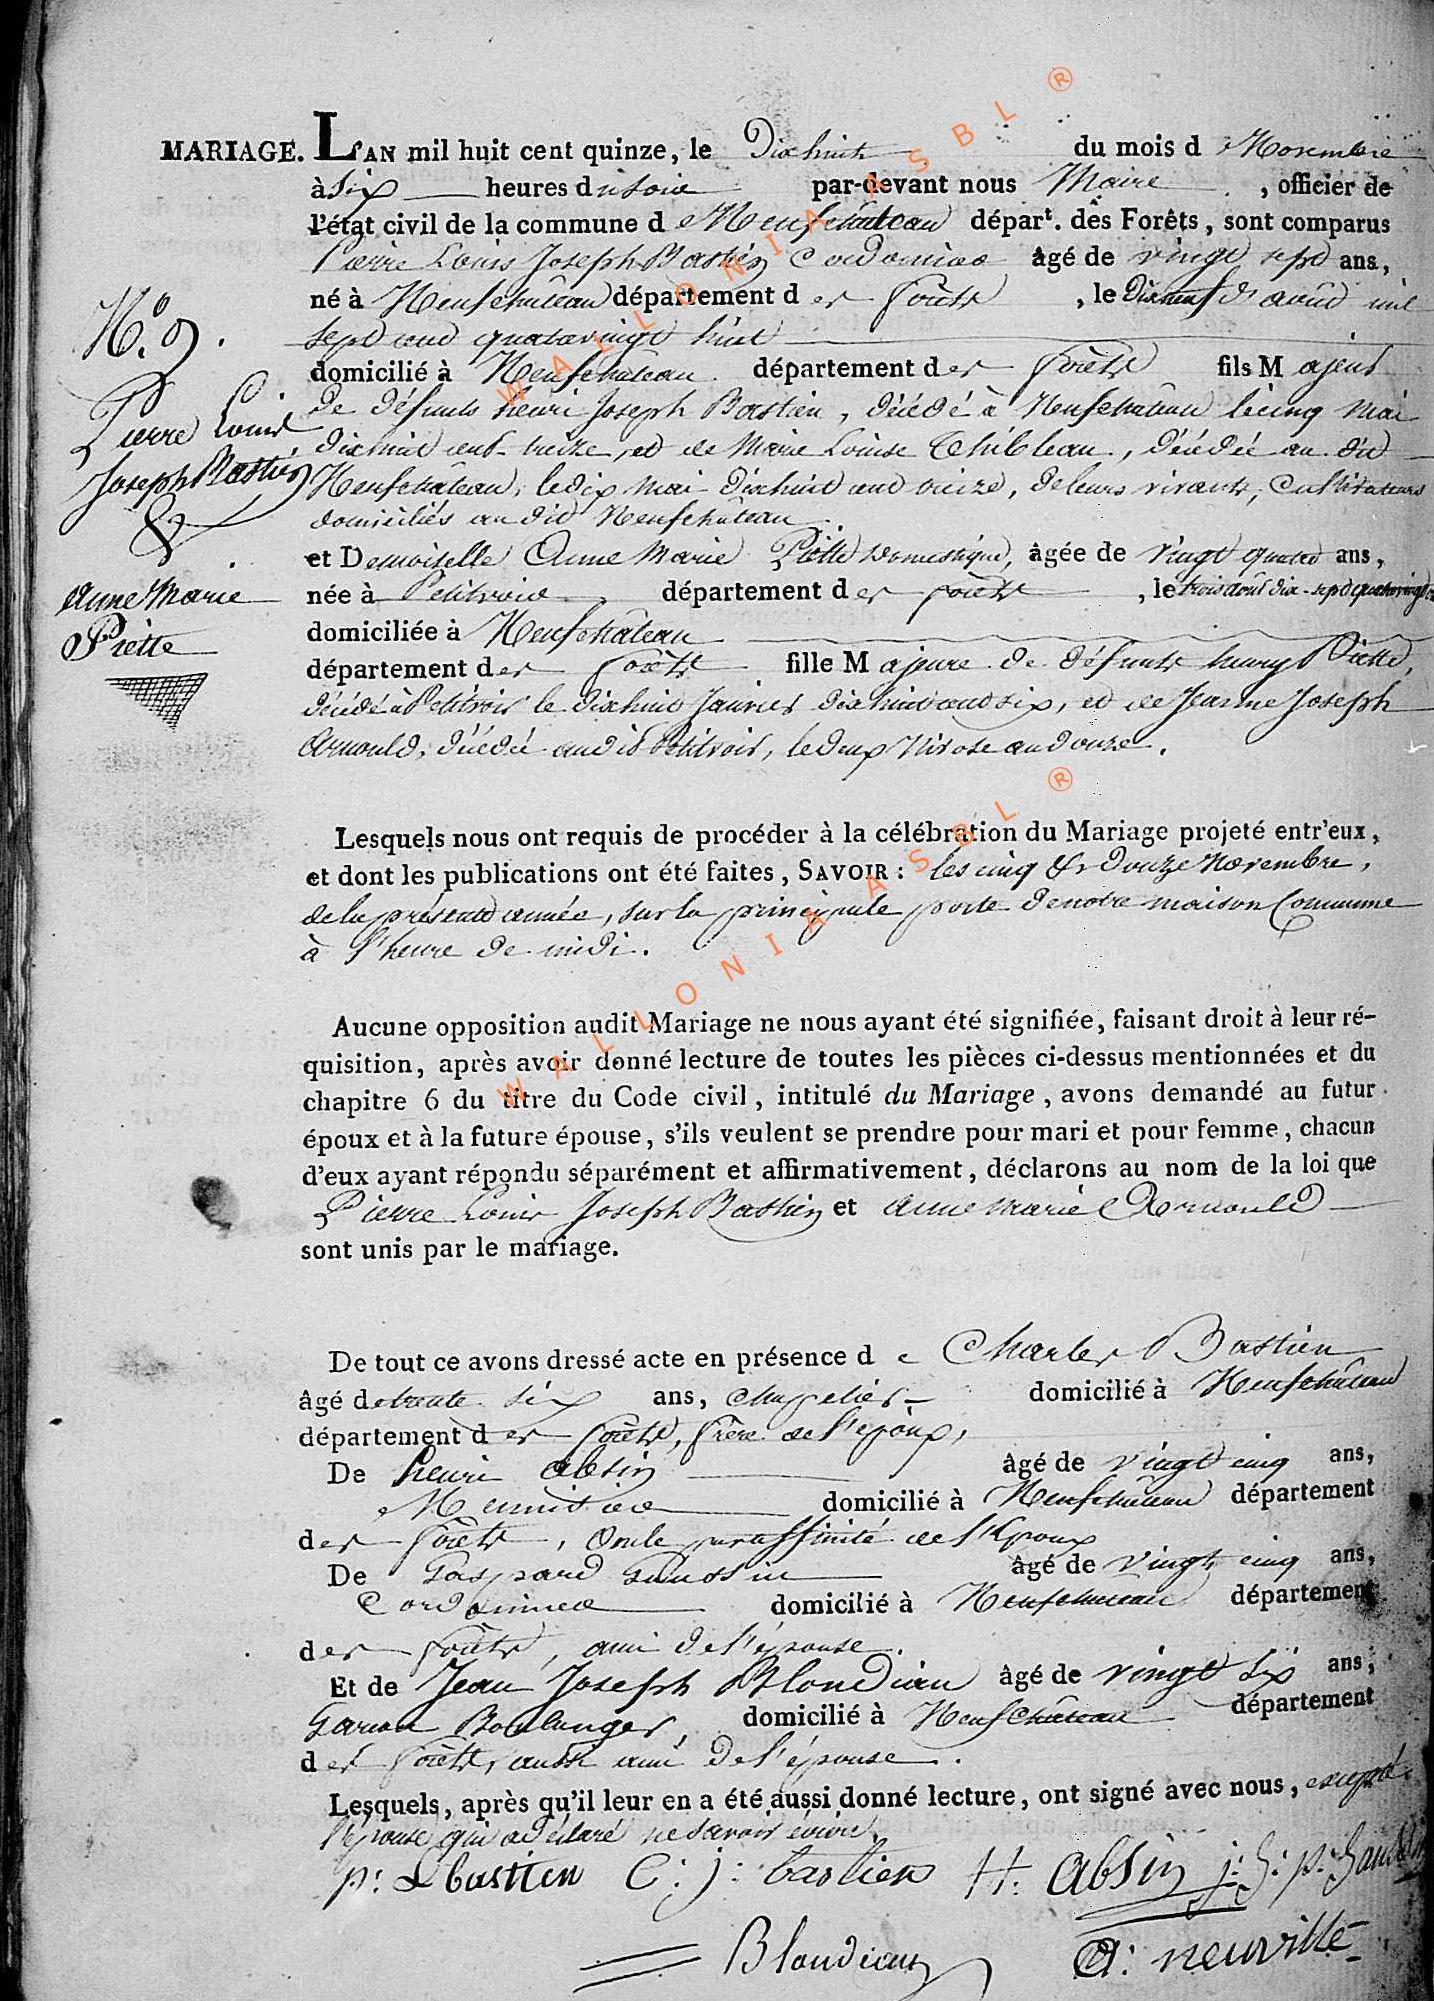 MARIAGE. L'AN mil huit cent quinze, le Dixhuit du mois de Novembre
à six heures du soir par-devant nous Maire, officier de
l'état civil de la commune de Neufchâteau départ. des Forêts, sont comparus
Pierre Louis Joseph Bastien Cordonnier âgé de vingt sept ans,
né à Neufchâteau département des Forêts, le Dixneuf d'août mil
sept cent quatrevingt huit
domicilié à Neufchâteau département des Forêts fils Majeur
de défunts henri Joseph Bastien, décédé à Neufchâteau le cinq Mai
dixhuit cent treize, et de Marie Louise Thibleau, décédée au dit
Neufchâteau, le dix Mai dixhuit cent treize, de leurs vivants, Cultivateurs
domiciliés au dit Neufchâteau
et Demoiselle Anne Marie Piette Domestique, âgée de vingt quatre ans,
née à Petitvoir, département des Forêts, le trois août dix-sept quatrevingt
domiciliée à Neufchâteau
département des Forêts fille Majeure de défunts henry Piette,
décédé à Petitvoir le dixhuit Janvier dixhuit cent six, et de Jeanne Joseph
Arnould, décédée audit Petitvoir, le deux Nivose an douze.
N.° 9.
Pierre Louis
Joseph Bastien
&
Anne Marie
Piette
Lesquels nous ont requis de procéder à la célébration du Mariage projeté entr'eux,
et dont les publications ont été faites, SAVOIR : les cinq & douze Novembre,
de la présente année, sur la principale porte de notre maison Commune
à l'heure de midi.
Aucune opposition audit Mariage ne nous ayant été signifiée, faisant droit à leur ré-
quisition, après avoir donné lecture de toutes les pièces ci-dessus mentionnées et du
chapitre 6 du titre du Code civil, intitulé du Mariage, avons demandé au futur
époux et à la future épouse, s'ils veulent se prendre pour mari et pour femme, chacun
d'eux ayant répondu séparément et affirmativement, déclarons au nom de la loi que
Pierre Louis Joseph Bastien et Anne Marie Arnould
sont unis par le mariage.
De tout ce avons dressé acte en présence de Charles Bastien
âgé de trente six ans, Chapelier domicilié à Neufchâteau
département des Forêts, frère de l'époux,
De henri Absin âgé de vingt cinq ans,
Menuisier domicilié à Neufchâteau département
des Forêts, Oncle par affinité de l'Epoux
De Gaspard Gaussin âgé de vingt cinq ans,
Cordonnier domicilié à Neufchâteau département
des Forêts, ami de l'épouse.
Et de Jean Joseph Blondiau âgé de vingt six ans,
Garcon Boulanger, domicilié à Neufchâteau département
des Forêts, aussi ami de l'épouse.
Lesquels, après qu'il leur en a été aussi donné lecture, ont signé avec nous, excepté
l'épouse qui a déclaré ne savoir écrire.
p: L bastien C: j: bastien H: Absin j: g: p:
Blondiau A: neuville
WALLONIA ASBL ®
WALLONIA ASBL ®